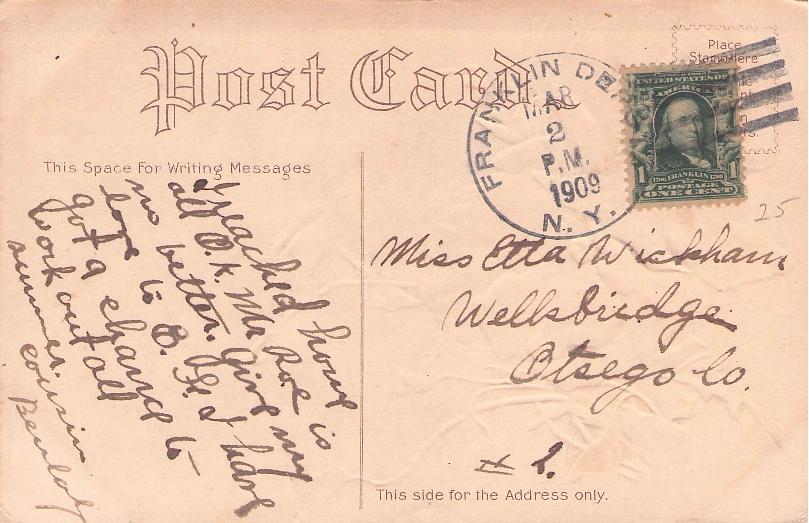 Post Card
Place
Stamp Here
FRANKLIN DE
MAR
2
P.M.
1909
N. Y.
UNITED STATES OF
AMERICA
1 1
FRANKLIN
POSTAGE
ONE CENT
25
This Space For Writing Messages
I reached home
all O.K. Mr Roe is
no better. Give my
love to E. I have
got a chance to
work out all
summer.
cousin
Beulah
Miss Etta Wickham
Wellsbridge
Otsego Co.
# 2.
This side for the Address only.